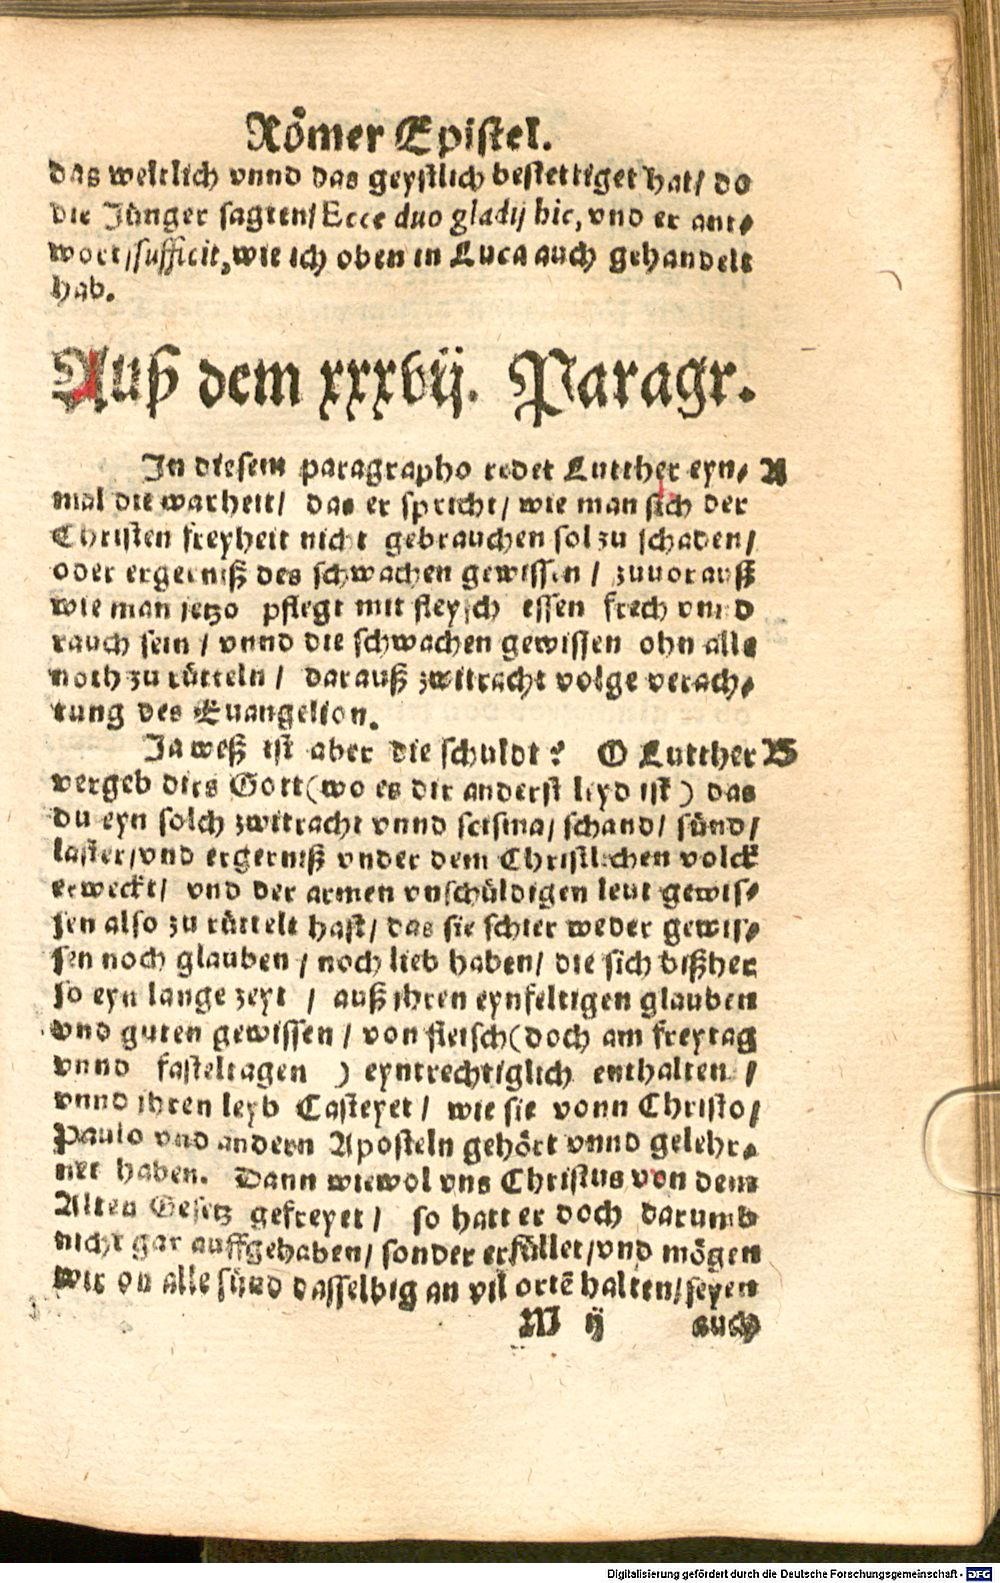 Römer Epistel.
das weltlich vnnd das geystlich bestettiget hat/ do
die Jünger sagten/ Ecce duo gladij hic, vnd er ant⸗
wort/ sufficit, wie ich oben in Luca auch gehandelt
hab.
Auß dem xxxvij. Paragr.
In diesem paragrapho redet Lutther eyn⸗ A
mal die warheit/ das er spricht/ wie man sich der
Christen freyheit nicht gebrauchen sol zu schaden/
oder ergerniß des schwachen gewissen/ zuuorauß
wie man jetzo pflegt mit fleysch essen frech vnnd
rauch sein/ vnnd die schwachen gewissen ohn alle
noth zu rütteln/ darauß zwitracht volge verach⸗
tung des Euangelion.
Ja weß ist aber die schuldt? O Lutther B
vergeb dirs Gott (wo es dir anderst leyd ist) das
du eyn solch zwitracht vnnd scisma/ schand/ sünd/
laster/ vnd ergerniß vnder dem Christlichen volck
erweckt/ vnd der armen vnschüldigen leut gewis⸗
sen also zu rüttelt hast/ das sie schier weder gewis⸗
sen noch glauben/ noch lieb haben/ die sich bißher
so eyn lange zeyt/ auß ihren eynfeltigen glauben
vnd guten gewissen/ von fleisch (doch am freytag
vnnd fasteltagen) eyntrechtiglich enthalten/
vnnd ihren leyb Casteyet/ wie sie vonn Christo/
Paulo vnd andern Aposteln gehört vnnd gelehr⸗
net haben. Dann wiewol vns Christus von dem
Alten Gesetz gefreyet/ so hatt er doch darumb
nicht gar auffgehaben/ sonder erfüllet/ vnd mögen
wir on alle sünd dasselbig an vil ortē halten/ seyen
M ij auch
Digitalisierung gefördert durch die Deutsche Forschungsgemeinschaft - DFG